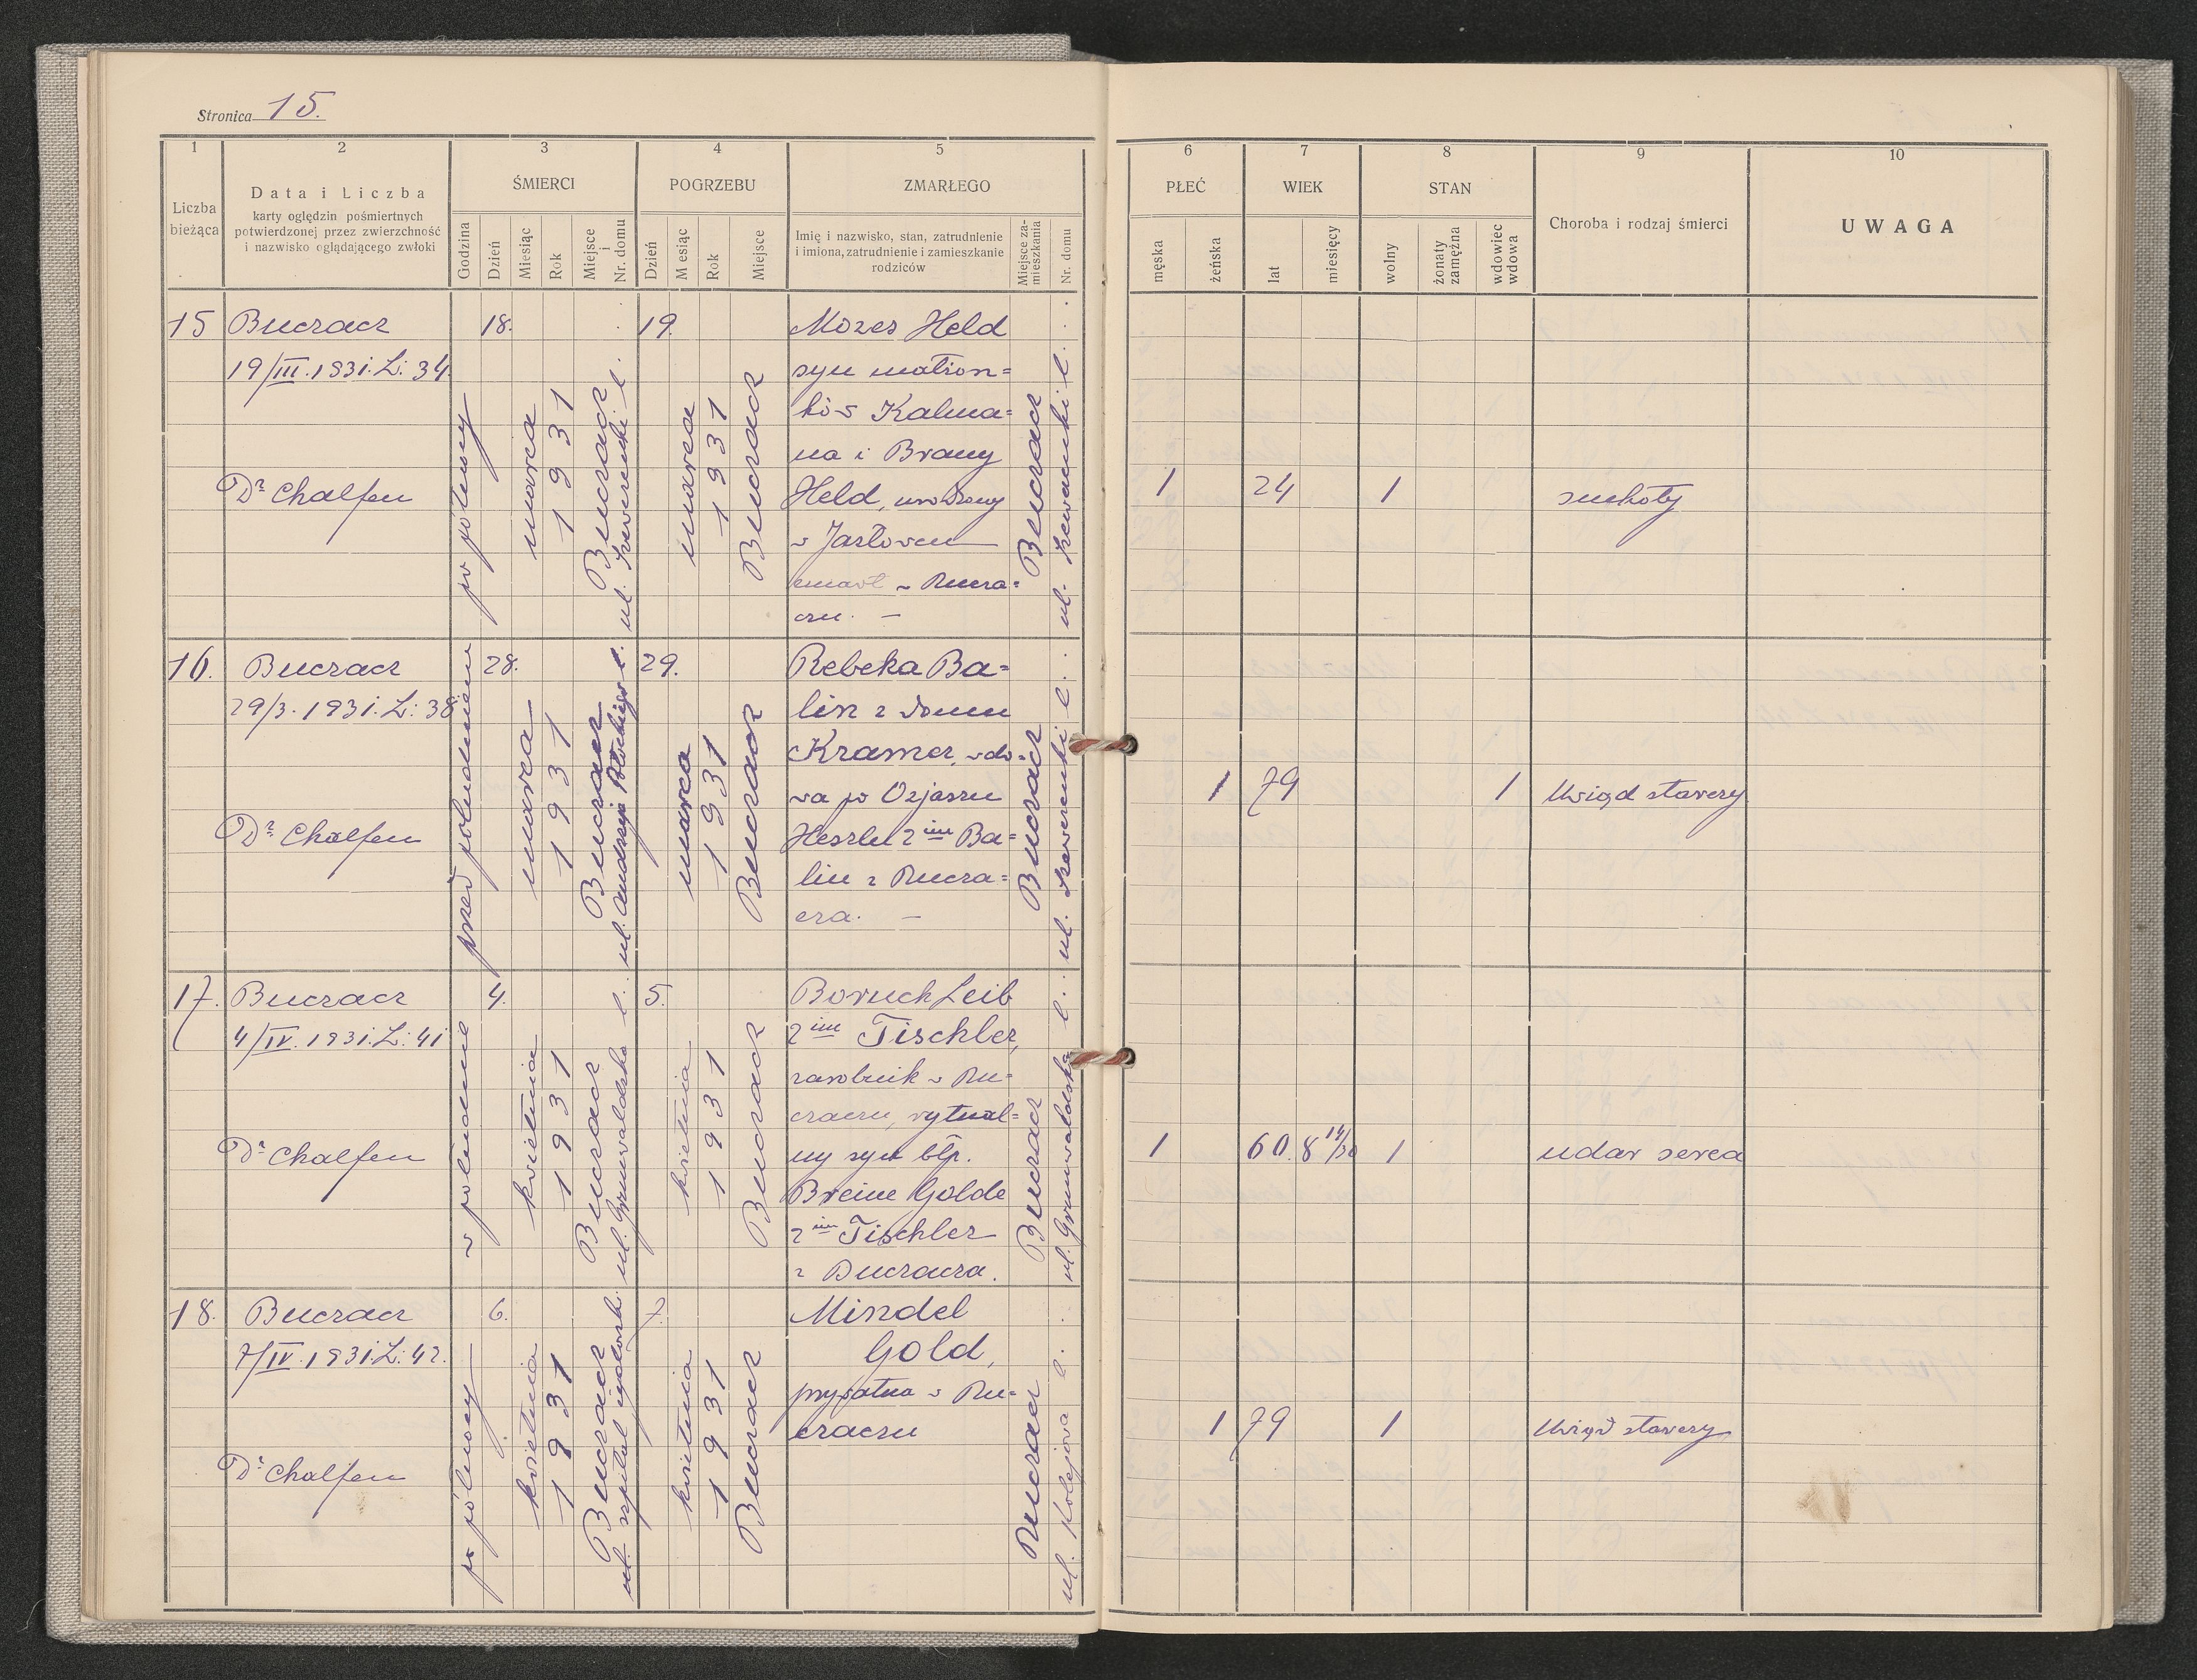 Stronica 15.
1 2 3 4 5 6 7 8 9 10
Liczba bieżąca
Data i Liczba
karty oględzin pośmiertnych
potwierdzonej przez zwierzchność
i nazwisko oglądającego zwłoki
ŚMIERCI
Godzina
Dzień
Miesiąc
Rok
Miejsce i Nr. domu
POGRZEBU
Dzień
M esiąc
Rok
Miejsce
ZMARŁEGO
Imię i nazwisko, stan, zatrudnienie
i imiona, zatrudnienie i zamieszkanie
rodziców
Miejsce za-
mieszkania
Nr. domu
PŁEĆ
męska
żeńska
WIEK
lat
miesięcy
STAN
wolny
żonaty
zamężna
wdowiec
wdowa
Choroba i rodzaj śmierci
UWAGA
15
Buczacz
19/III. 1931. L: 34.
Dr Chalfen
po północy
18.
marca
1931
Buczacz
19.
marca
1931
Buczacz
Mozes Held
syn małżon=
ków Kalma=
na i Brany
Held, urodzony
w Jazłowcu
zmarł w Bucza=
czu. —
Buczacz
1
24
1
suchoty
16.
Buczacz
29/3. 1931. L: 38.
Dr Chalfen
przed południem
28.
marca
1931
Buczacz
ul. Andrzeja Potockiego l.
29.
marca
1931
Buczacz
Rebeka Ba=
lin z domu
Kramer, wdo=
wa po Ozjaszu
Heszlu 2im Ba=
lin z Bucza=
cza. —
Buczacz
1
79
1
Uwiąd starczy
17.
Buczacz
4/IV. 1931. L: 41
Dr Chalfen
w południe
4.
kwietnia
1931
Buczacz
ul. Grunwaldzka l.
5.
kwietnia
1931
Buczacz
Boruch Leib
2im Tischler,
zarobnik w Bu=
czaczu, rytual=
ny syn błp.
Breine Golde
2im Tischler
z Buczacza.
Buczacz
ul. Grunwaldzka l.
1
60. 8 14/30
1
udar serca
18.
Buczacz
7/IV. 1931. L: 42.
Dr Chalfen
po północy
6.
kwietnia
1931
Buczacz
ul. szpital żydowski
7.
kwietnia
1931
Buczacz
Mindel
Gold,
prywatna w Bu=
czaczu
Buczacz
ul. Kolejowa l.
1
79
1
Uwiąd starczy